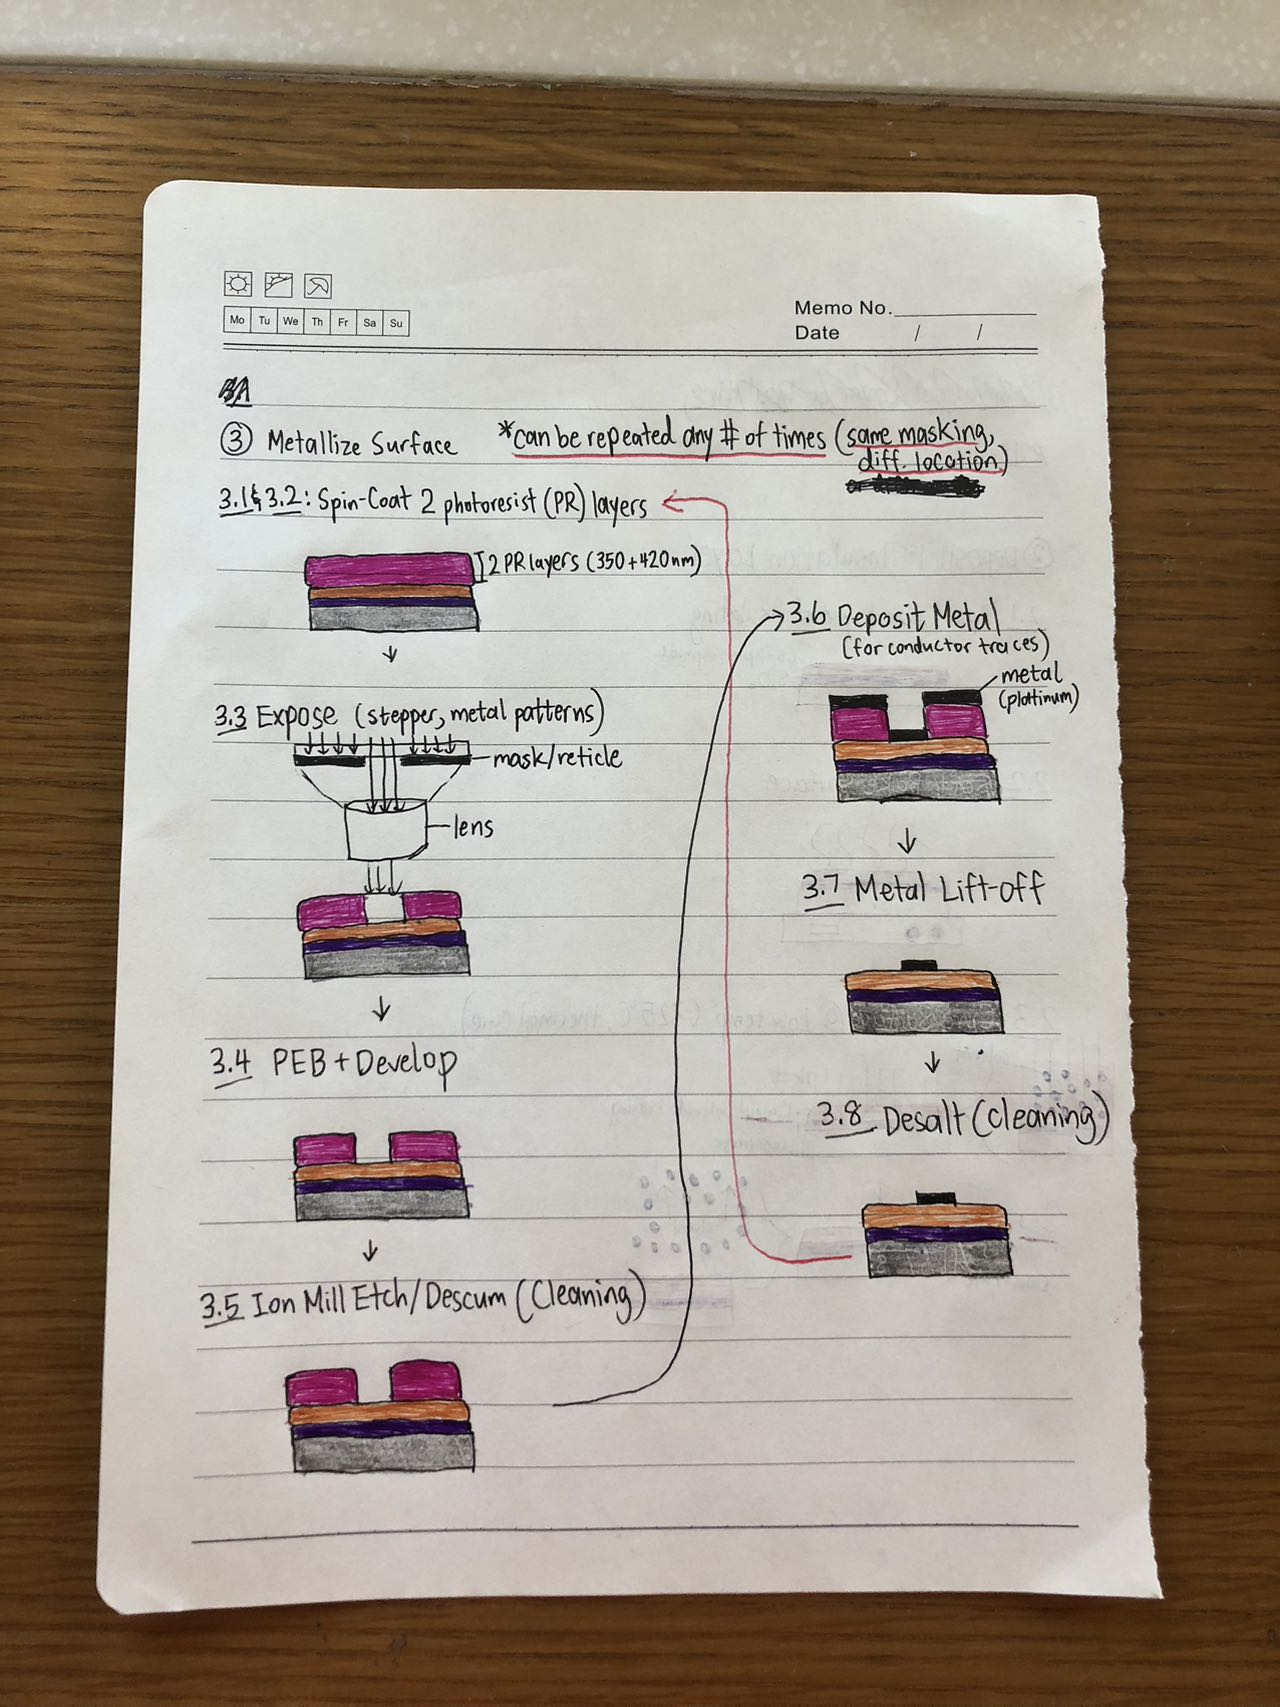 Mo Tu We Th Fr Sa Su
Memo No.
Date / /
③ Metallize Surface *can be repeated any # of times (same masking,
diff. location)
3.1 & 3.2: Spin-Coat 2 photoresist (PR) layers
2 PR layers (350+420nm)
3.3 Expose (stepper, metal patterns)
mask/reticle
lens
3.4 PEB + Develop
3.5 Ion Mill Etch/Descum (Cleaning)
3.6 Deposit Metal
(for conductor traces)
metal
(platinum)
3.7 Metal Lift-off
3.8 Desalt (Cleaning)